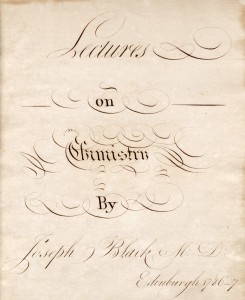 Lectures
on
Chimistry
By
Joseph Black M.D.
Edinburgh 1786-7